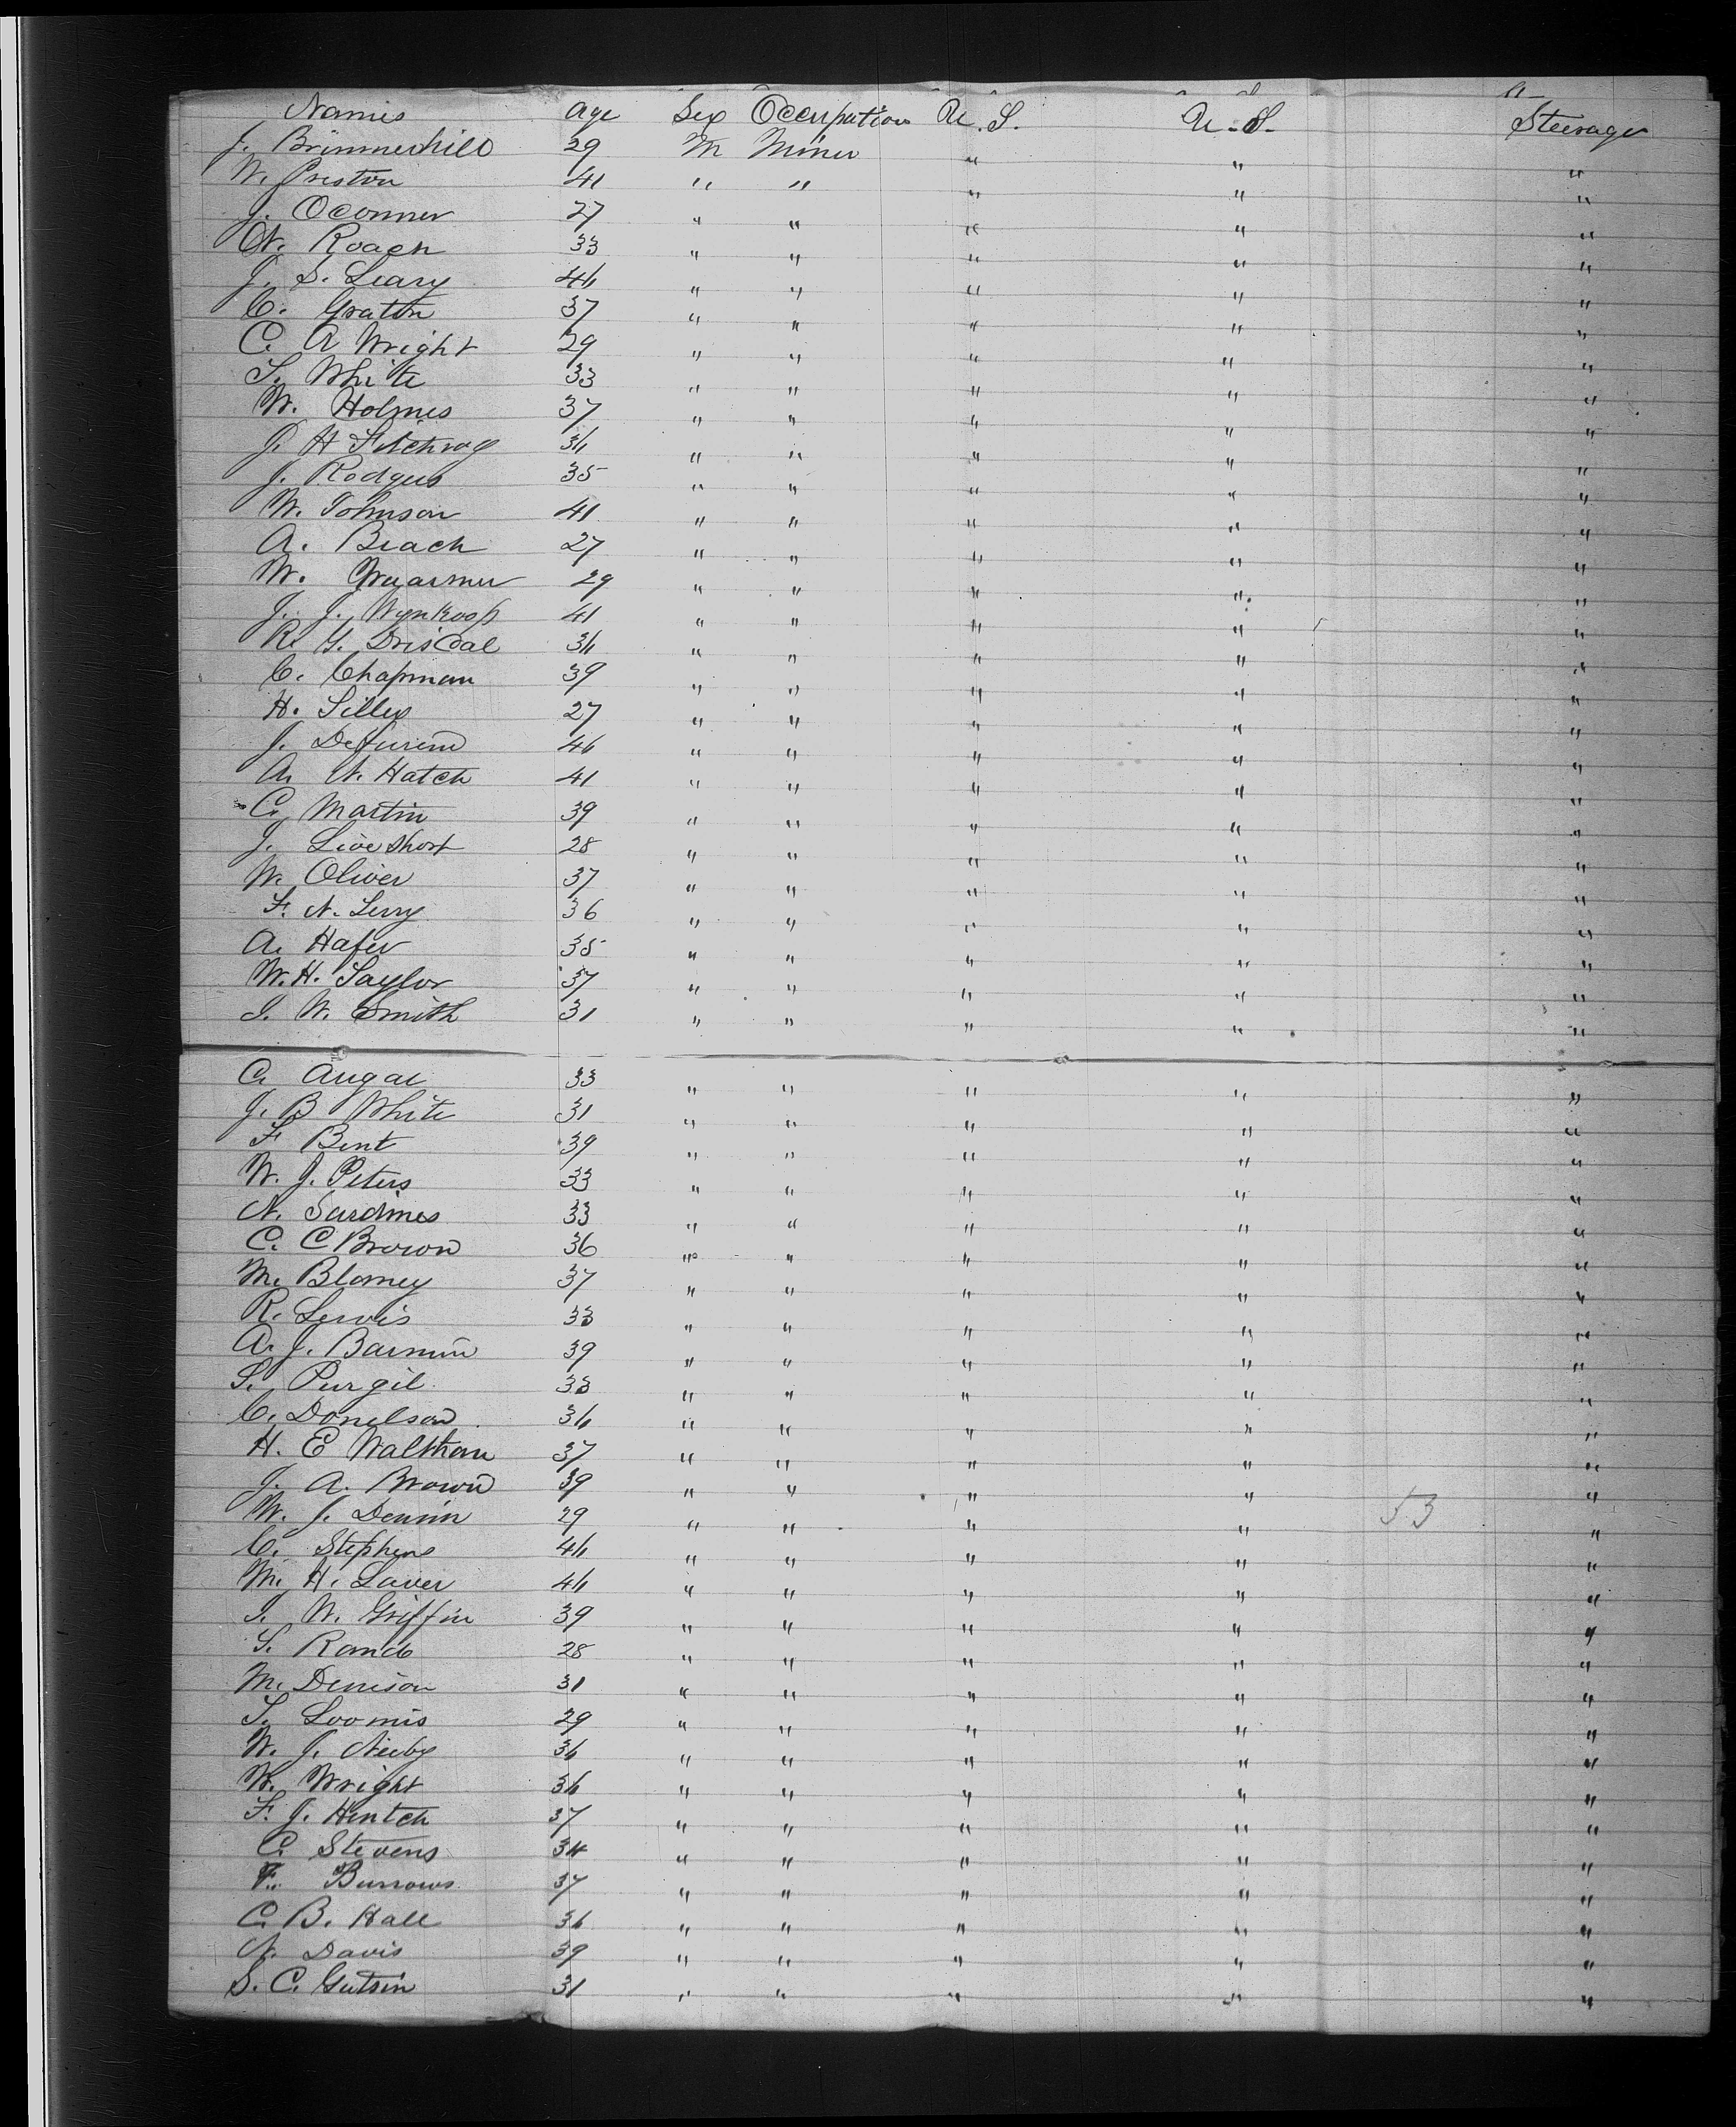 Names Age Sex Occupation U.S. U.S. Steerage
J. Brimmerhill 29 M Miner " " "
W. Preston 41 " " " " "
J. Oconner 27 " " " " "
N. Roach 33 " " " " "
J. S. Leary 46 " " " " "
C. Graton 37 " " " " "
C. A Wright 29 " " " " "
T. White 33 " " " " "
W. Holmes 37 " " " " "
J. H 36 " " " " "
J. Rodgers 35 " " " " "
W. Johnson 41 " " " " "
A. Beach 27 " " " " "
W. 29 " " " " "
J. J. Wynkoop 41 " " " " "
R. G. Driscoal 36 " " " " "
C. Chapman 39 " " " " "
H. Silley 27 " " " " "
J. 46 " " " " "
A. N. Hatch 41 " " " " "
C. Martin 39 " " " " "
J. Live Short 28 " " " " "
W. Oliver 37 " " " " "
F. N. Levy 36 " " " " "
A. Hafer 35 " " " " "
W. H. Taylor 37 " " " " "
J. W. Smith 31 " " " " "
C. Augae 33 " " " " "
J. B White 31 " " " " "
F Bent 39 " " " " "
W. J. Peters 33 " " " " "
N. Sardines 33 " " " " "
C. C Brown 36 " " " " "
M. Blomey 37 " " " " "
R. Lewis 33 " " " " "
A. J. Barnum 39 " " " " "
S. Purgil 33 " " " " "
C. Donelson 36 " " " " "
H. E Waltham 37 " " " " "
J. A. Brown 39 " " " " "
W. J. Dennin 29 " " " 53 "
C. Stephens 46 " " " " "
M. H. Laver 46 " " " " "
J. W. Griffin 39 " " " " "
S. Rands 28 " " " " "
M. Denison 31 " " " " "
T. Loomis 29 " " " " "
W. J. Neeby 36 " " " " "
W. Wright 36 " " " " "
F. J. Hintch 37 " " " " "
C. Stevens 34 " " " " "
F. Burrows 37 " " " " "
C. B. Hall 36 " " " " "
N. Davis 39 " " " " "
S. C. Gutsin 31 " " " " "